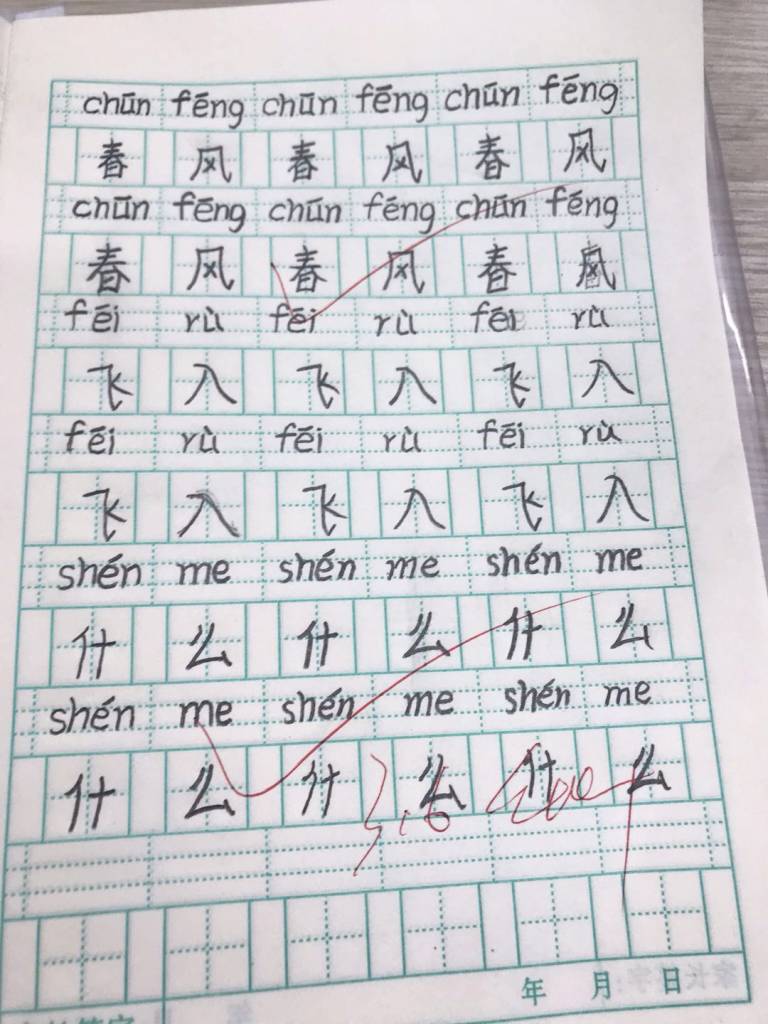 chūn fēng chūn fēng chūn fēng
春 风 春 风 春 风
chūn fēng chūn fēng chūn fēng
春 风 春 风 春 风
fēi rù fēi rù fēi rù
飞 入 飞 入 飞 入
fēi rù fēi rù fēi rù
飞 入 飞 入 飞 入
shén me shén me shén me
什 么 什 么 什 么
shén me shén me shén me
什 么 什 么 什 么
3.16
年 月 日